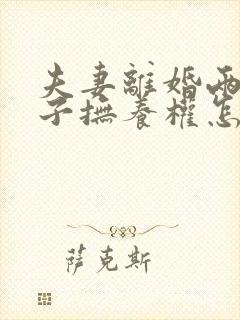 夫妻離婚兩
子撫養權怎
萨克斯